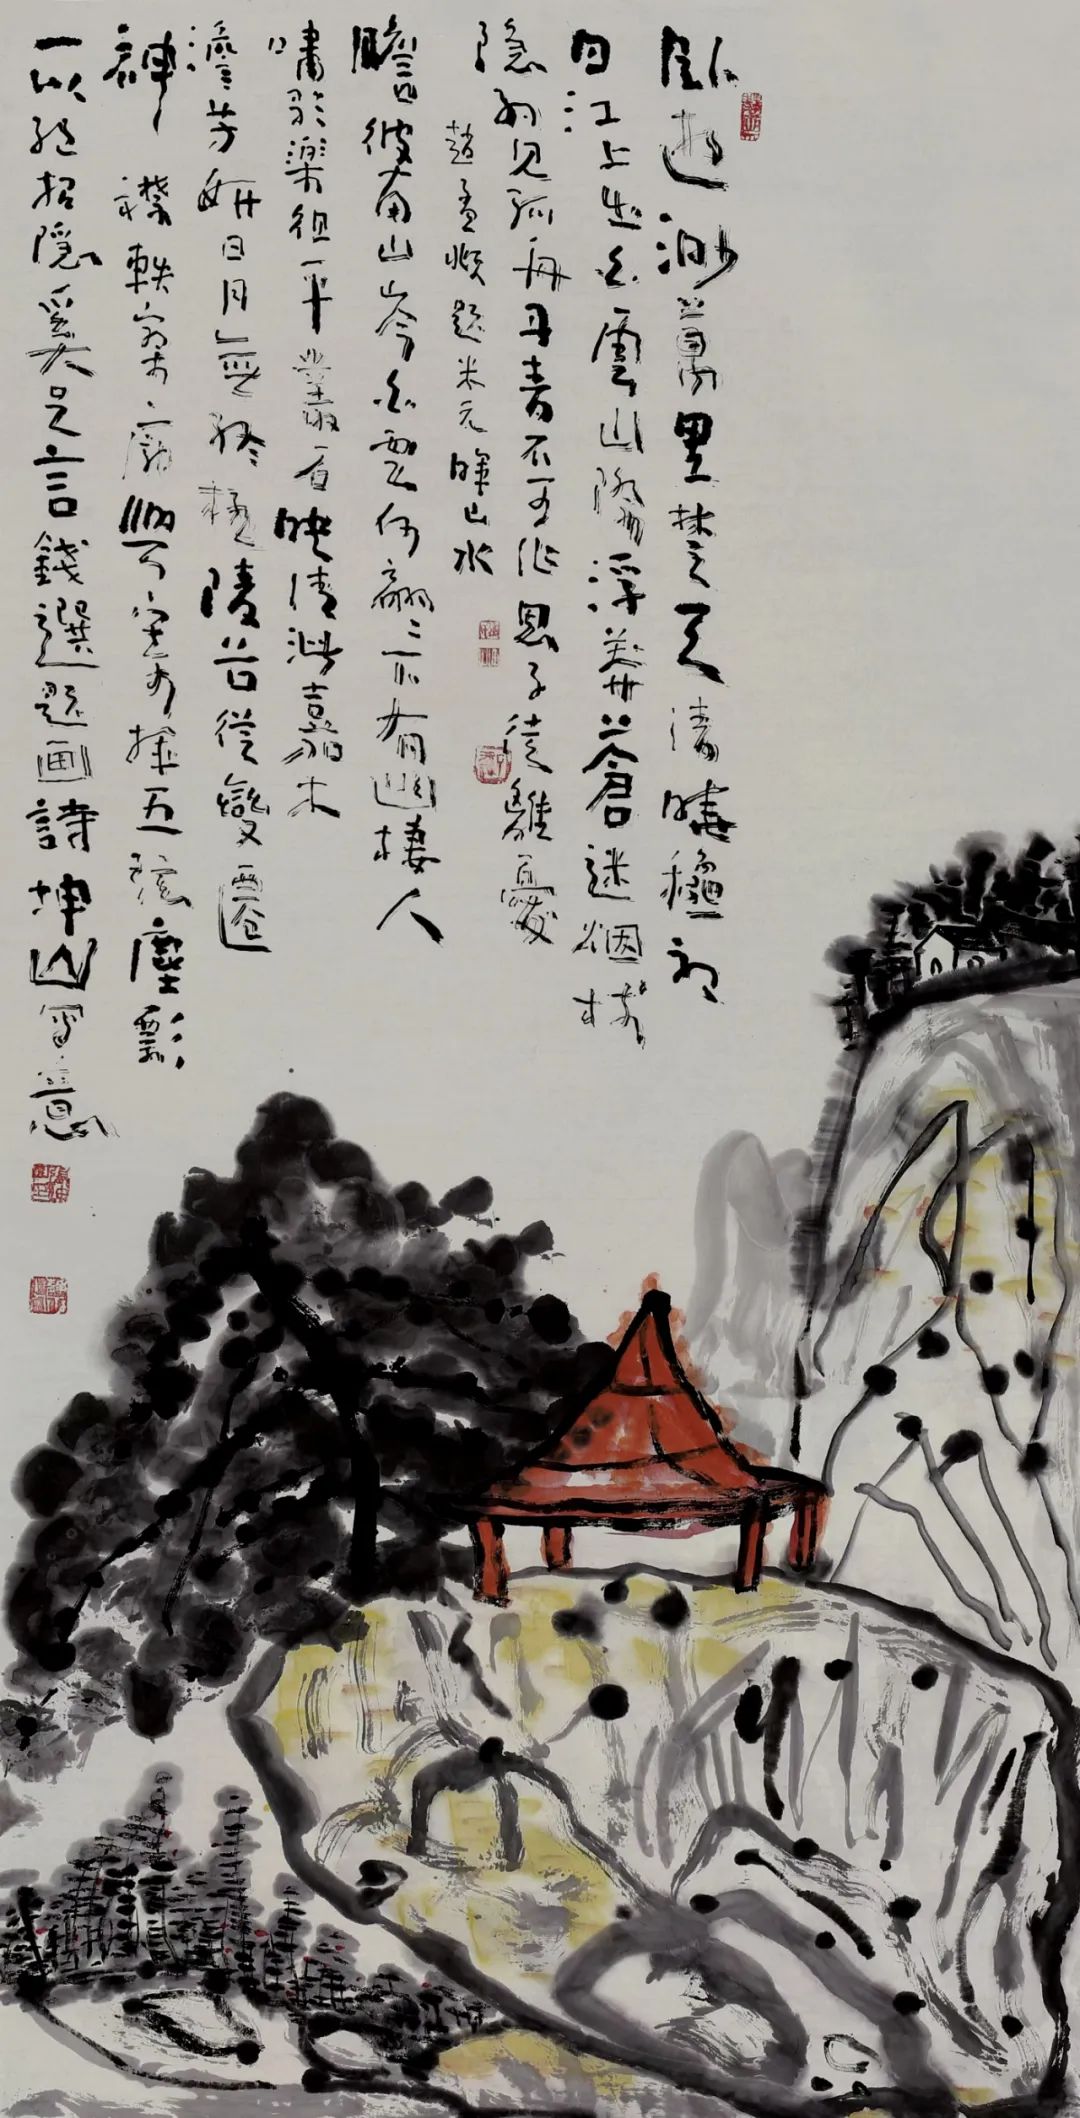 卧遊渺萬里楚天清曉穐初
日江上生白雲山浮莽蒼迷烟樹
隐約見孤舟丹青不可作思子徒離憂
趙孟頫題米元暉山水
瞻彼南山岑白雲何翩〻下有幽棲人
嘯歌樂徂年叢石映清泚嘉木
澹芳妍日月無終極陵谷從變遷
神襟軼寥廓興寄揮五弦塵影
一以絶招隱奚足言錢選題画詩坤山寫意